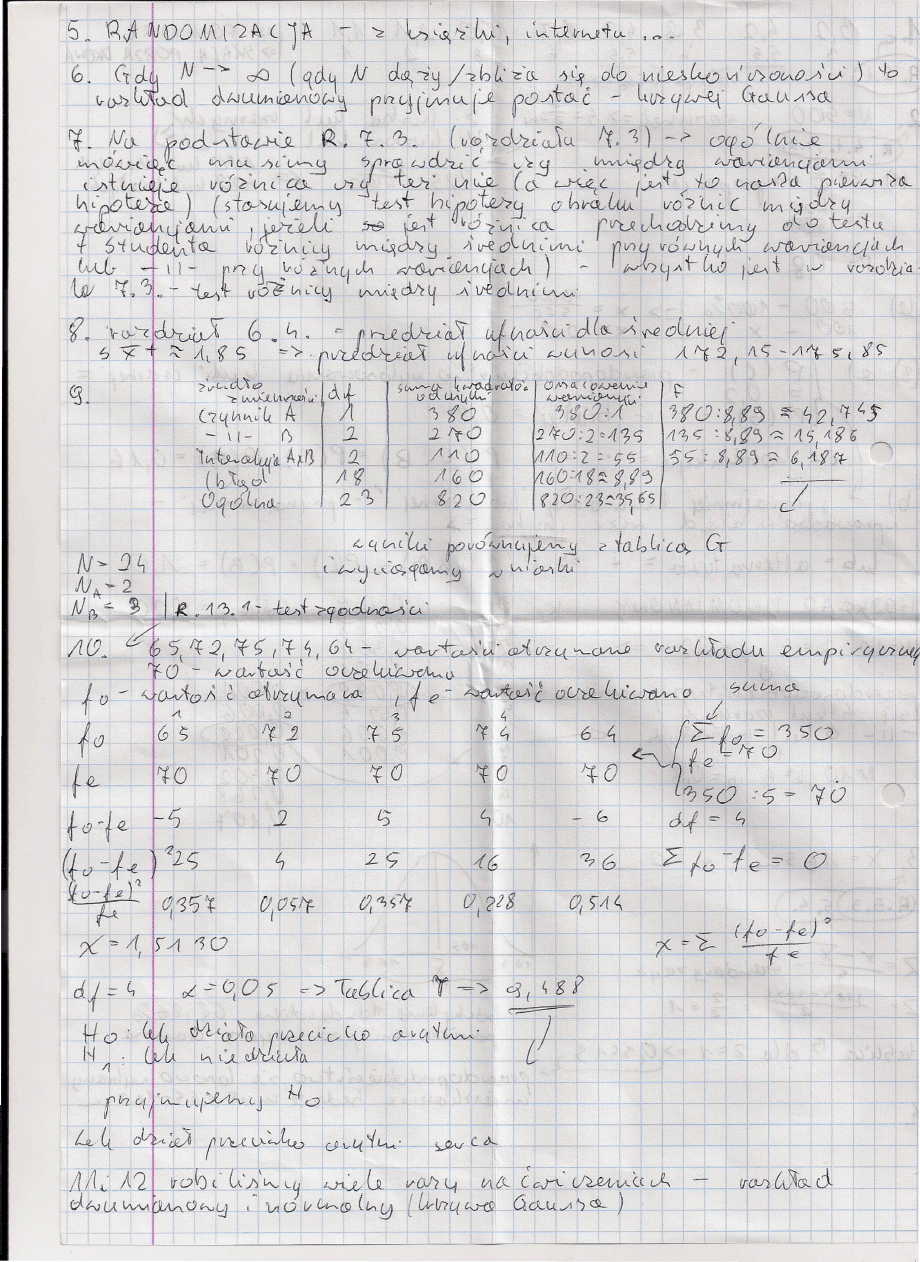 5. RANDOMIZACJA - z książki, internetu ...
6. Gdy N -> ∞ (gdy N dąży /zbliża się do nieskończoności) to
rozkład dwumienowy przyjmuje postać - krzywej Gaussa
7. Na podstawie R.7.3. (rozdziału 7.3) -> ogólnie
mówiąc musimy sprawdzić czy między wariancjami
istnieje różnica czy też nie (a więc jest to nasza pierwsza
hipoteza) (stosujemy test hipotezy o braku różnic między
wariancjami, jeżeli jest różnica przechodzimy do testu
t studenta różnicy między średnimi przy równych wariancjach
lub -11- przy różnych wariancjach) - wszystko jest w rozdzia-
le 7.3. - test różnicy między średnimi
8. rozdział 6.4. - przedział ufności dla średniej
s x̄ t ≈ 1,85 => przedział ufności wynosi 172,15-175,85
9. źródło zmienności | df | suma kwadratów odchyleń | oszacowanie wariancji | F
Czynnik A 1 380 380:1 380:8,89 ≈ 42,745
-11- B 2 270 270:2=135 135:8,89 ≈ 15,186
Interakcja AxB 2 110 110:2=55 55:8,89 ≈ 6,187
(błąd 18 160 160:18≈8,89
Ogólna 23 820 820:23≈35,65
wyniki porównujemy z tablicą G
i wyciągamy wnioski
N=24
N_A=2
N_B=3 | R.13.1- test zgodności
10. 65,72,75,74,64 - wartości otrzymane rozkładu empiryczneg
70 - wartość oczekiwana
fo - wartość otrzymana, fe - wartość oczekiwana suma
1 2 3 4
fo 65 72 75 74 64 Σ fo = 350
fe = 70
fe 70 70 70 70 70
350 : 5 = 70
fo-fe -5 2 5 4 -6 df = 4
(fo-fe)² 25 4 25 16 36 Σ fo-fe = 0
(fo-fe)²/fe 0,357 0,057 0,357 0,228 0,514
x = 1,5130 x = Σ (fo-fe)²/fe
df=4 α=0,05 => Tablica T -> 9,488
H0: lek działa przeciwko arytmi
H1: lek niedziała
przyjmujemy H0
Lek dział przeciwko arytmi serca
11 i 12 robiliśmy wiele razy na ćwiczeniach - rozkład
dwumianowy i normalny (krzywa Gaussa)